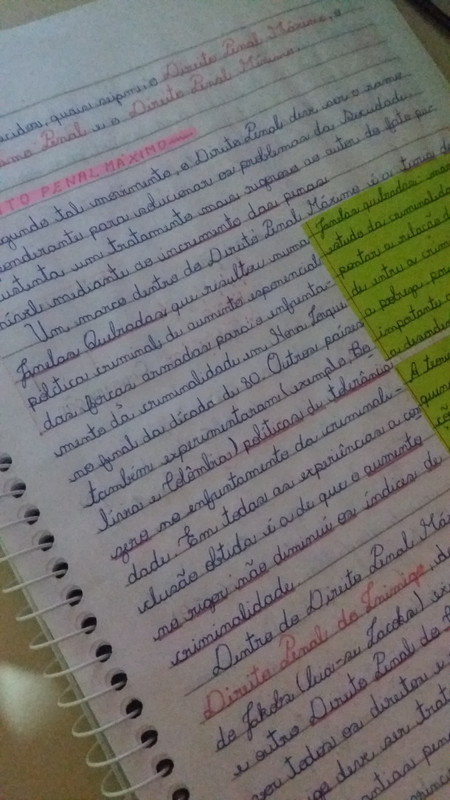 quais sejam, o Direito Penal Máximo, o
Penal e o Direito Penal
TO PENAL MÁXIMO
egundo tal movimento, o Direito Penal deve ser o ramo
ponderante para solucionar os problemas da Sociedade.
ustenta um tratamento mais rigoroso ao autor do fato
nível mediante ao incremento das penas.
Um marco dentro do Direito Penal Máximo é a teoria da
Janelas Quebradas que resultou numa
política criminal de aumento exponencial
das forças armadas para o enfrenta-
mento da criminalidade em Nova Iorque
no final da década de 80. Outros países
também experimentaram (exemplo Bo
lívia e Colômbia) políticas de tolerância
zero no enfrentamento da criminali-
dade. Em todas as experiências a con
clusão obtida é a de que o aumento
no rigor não diminui os índices de
criminalidade.
Dentro do Direito Penal Má
Direito Penal do Inimigo, de
do Jakobs (leia-se Jacobs)
e outro Direito Penal do
todos os direitos e
deve ser trat
antias pen
Janelas quebradas:
estudo da criminalida
a relação d
de entre a crimi
a pobreza,
importante
a desordem
A teori